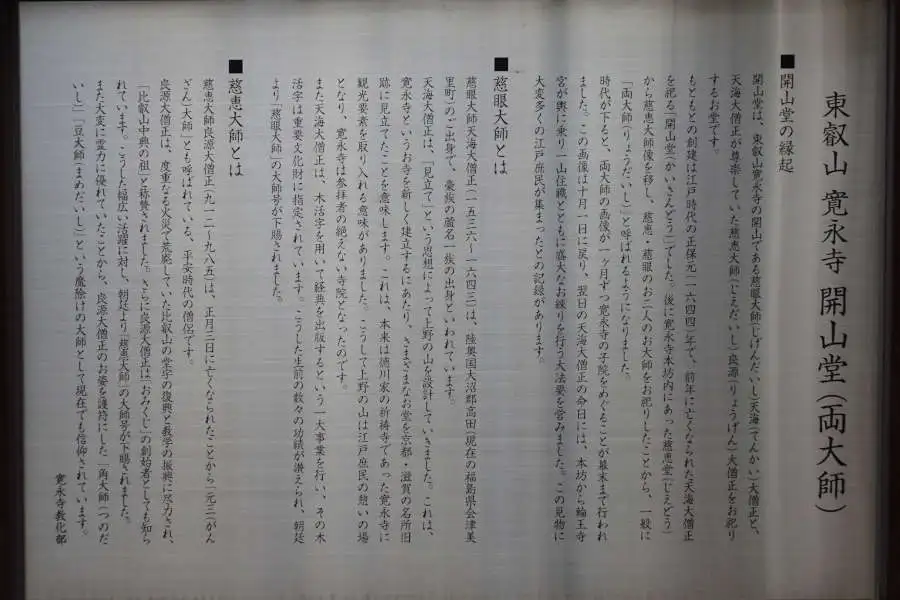 東叡山 寛永寺 開山堂(両大師)
■開山堂の縁起
開山堂は、東叡山寛永寺の開山である慈眼大師(じげんだいし)天海(てんかい)大僧正と、
天海大僧正が尊崇していた慈恵大師(じえだいし)良源(りょうげん)大僧正をお祀り
するお堂です。
もともとの創建は江戸時代の正保元(一六四四)年で、前年に亡くなられた天海大僧正
を祀る「開山堂(かいさんどう)」でした。後に寛永寺本坊内にあった慈恵堂(じえどう)
から慈恵大師像を移し、慈恵・慈眼のお二人のお大師をお祀りしたことから、一般に
「両大師(りょうだいし)」と呼ばれるようになりました。
時代が下ると、両大師の画像が一ヶ月ずつ寛永寺の子院をめぐることが幕末まで行われ
ました。この画像は十月一日に戻り、翌日の天海大僧正の命日には、本坊から輪王寺
宮が輿に乗り一山住職とともに盛大なお練りを行う大法要を営みました。この見物に
大変多くの江戸庶民が集まったとの記録があります。
■慈眼大師とは
慈眼大師天海大僧正(一五三六〜一六四三)は、陸奥国大沼郡高田(現在の福島県会津美
里町)のご出身で、豪族の蘆名一族の出身といわれています。
天海大僧正は、「見立て」という思想によって上野の山を設計していきました。これは、
寛永寺というお寺を新しく建立するにあたり、さまざまなお堂を京都・滋賀の名所旧
跡に見立てたことを意味します。これは、本来は徳川家の祈祷寺であった寛永寺に
観光要素を取り入れる意味がありました。こうして上野の山は江戸庶民の憩いの場
となり、寛永寺は参拝者の絶えない寺院となったのです。
また天海大僧正は、木活字を用いて経典を出版するという一大事業を行い、その木
活字は重要文化財に指定されています。こうした生前の数々の功績が讃えられ、朝廷
より「慈眼大師」の大師号が下賜されました。
■慈恵大師とは
慈恵大師良源大僧正(九一二〜九八五)は、正月三日に亡くなられたことから「元三(がん
ざん)大師」とも呼ばれている、平安時代の僧侶です。
良源大僧正は、度重なる火災で荒廃していた比叡山の堂宇の復興と教学の振興に尽力され、
「比叡山中興の祖」と称賛されました。さらに良源大僧正は「おみくじ」の創始者としても知ら
れています。こうした幅広い活躍に対し、朝廷より「慈恵大師」の大師号が下賜されました。
また大変に霊力に優れていたことから、良源大僧正のお姿を護符にした「角大師(つのだ
いし)」「豆大師(まめだいし)」という魔除けの大師として現在でも信仰されています。
寛永寺教化部